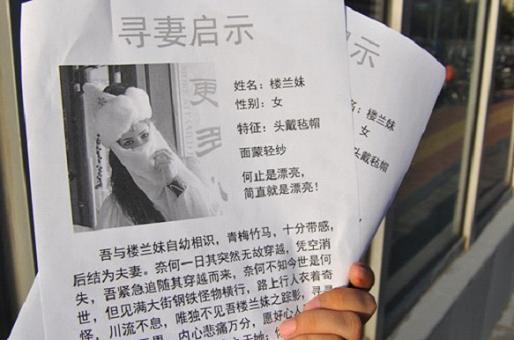 寻妻启示
姓名：楼兰妹
性别：女
特征：头戴毡帽
面蒙轻纱
何止是漂亮，
简直就是漂亮！
更多
吾与楼兰妹自幼相识，青梅竹马，十分带感，
后结为夫妻。奈何一日其突然无故穿越，凭空消
失，吾紧急追随其穿越而来，奈何不知今世是何
世，但见满大街钢铁怪物横行，路上行人衣着奇
怪，川流不息，唯独不见吾楼兰妹之踪影，寻寻
内心悲痛万分，愿好心人
启示
楼兰妹
女
头戴毡帽